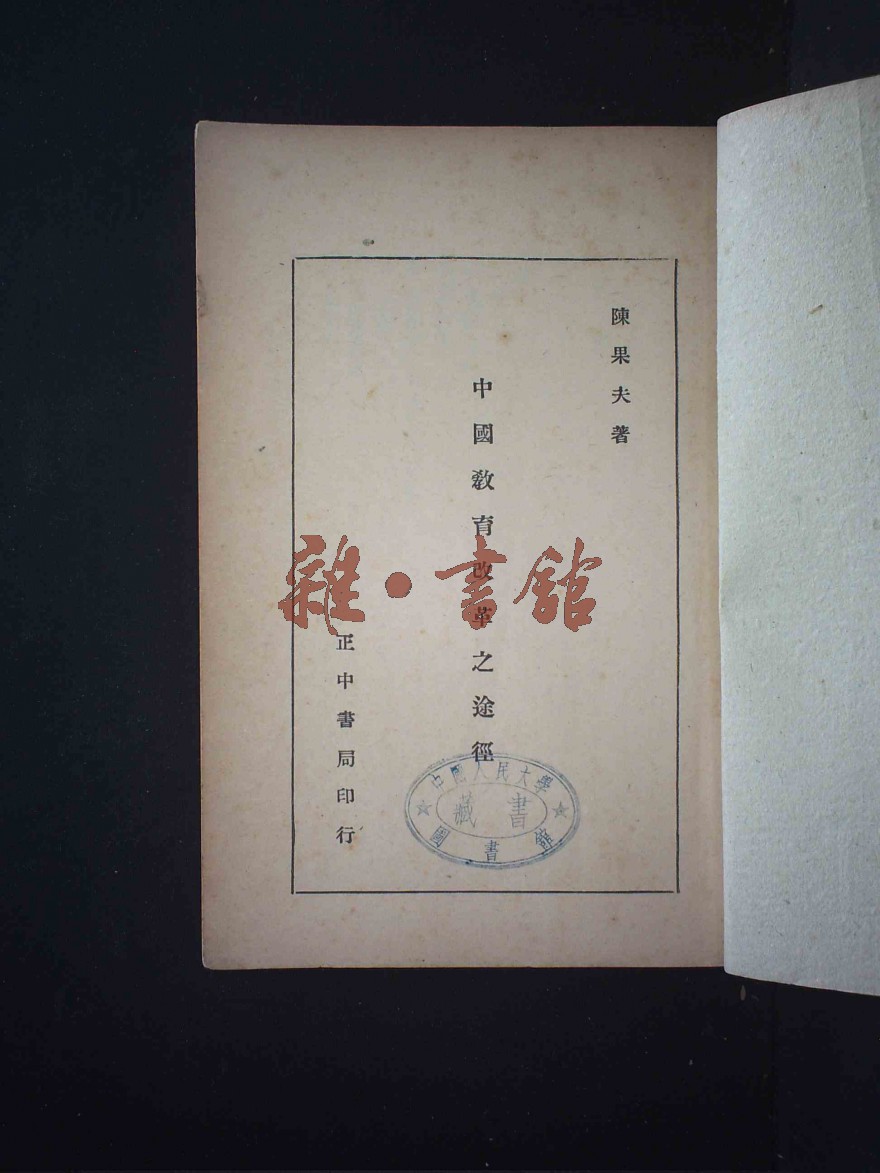 陳果夫著
中國教育改革之途徑
正中書局印行
雜·書館
中國人民大學
藏書
圖書館